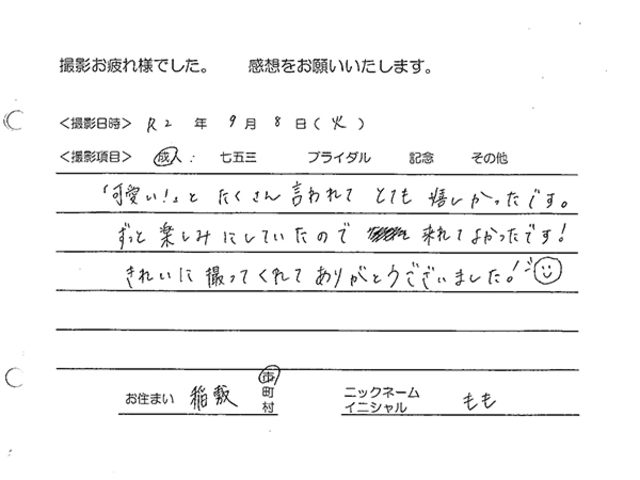 撮影お疲れ様でした。　感想をお願いいたします。
<撮影日時> R2 年 9 月 8 日 (火)
<撮影項目> 成人 : 七五三 ブライダル 記念 その他
「可愛い!」と たくさん 言われて とても 嬉しかったです。
ずっと 楽しみ にしていたので 来れてよかったです!
きれいに 撮ってくれて ありがとうございました!
お住まい 稲敷 市 町 村 ニックネーム イニシャル もも